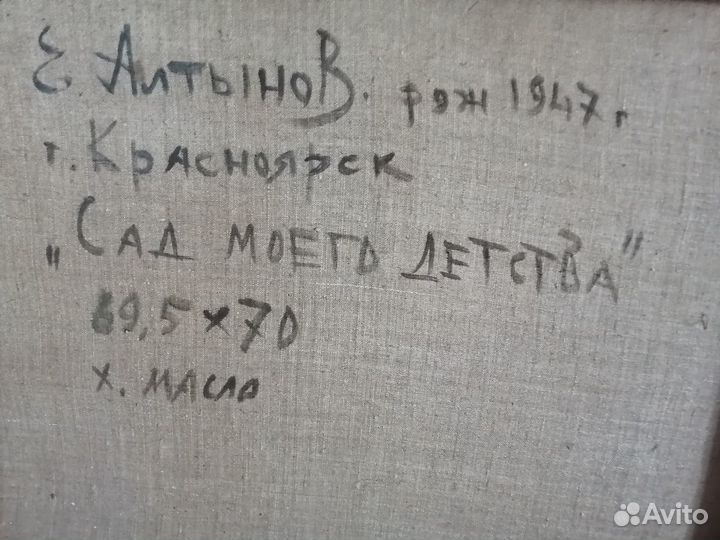 Е. Алтынов. рож 1947 г
г. Красноярск
„Сад моего детства"
69,5 х 70
х. масло
Avito